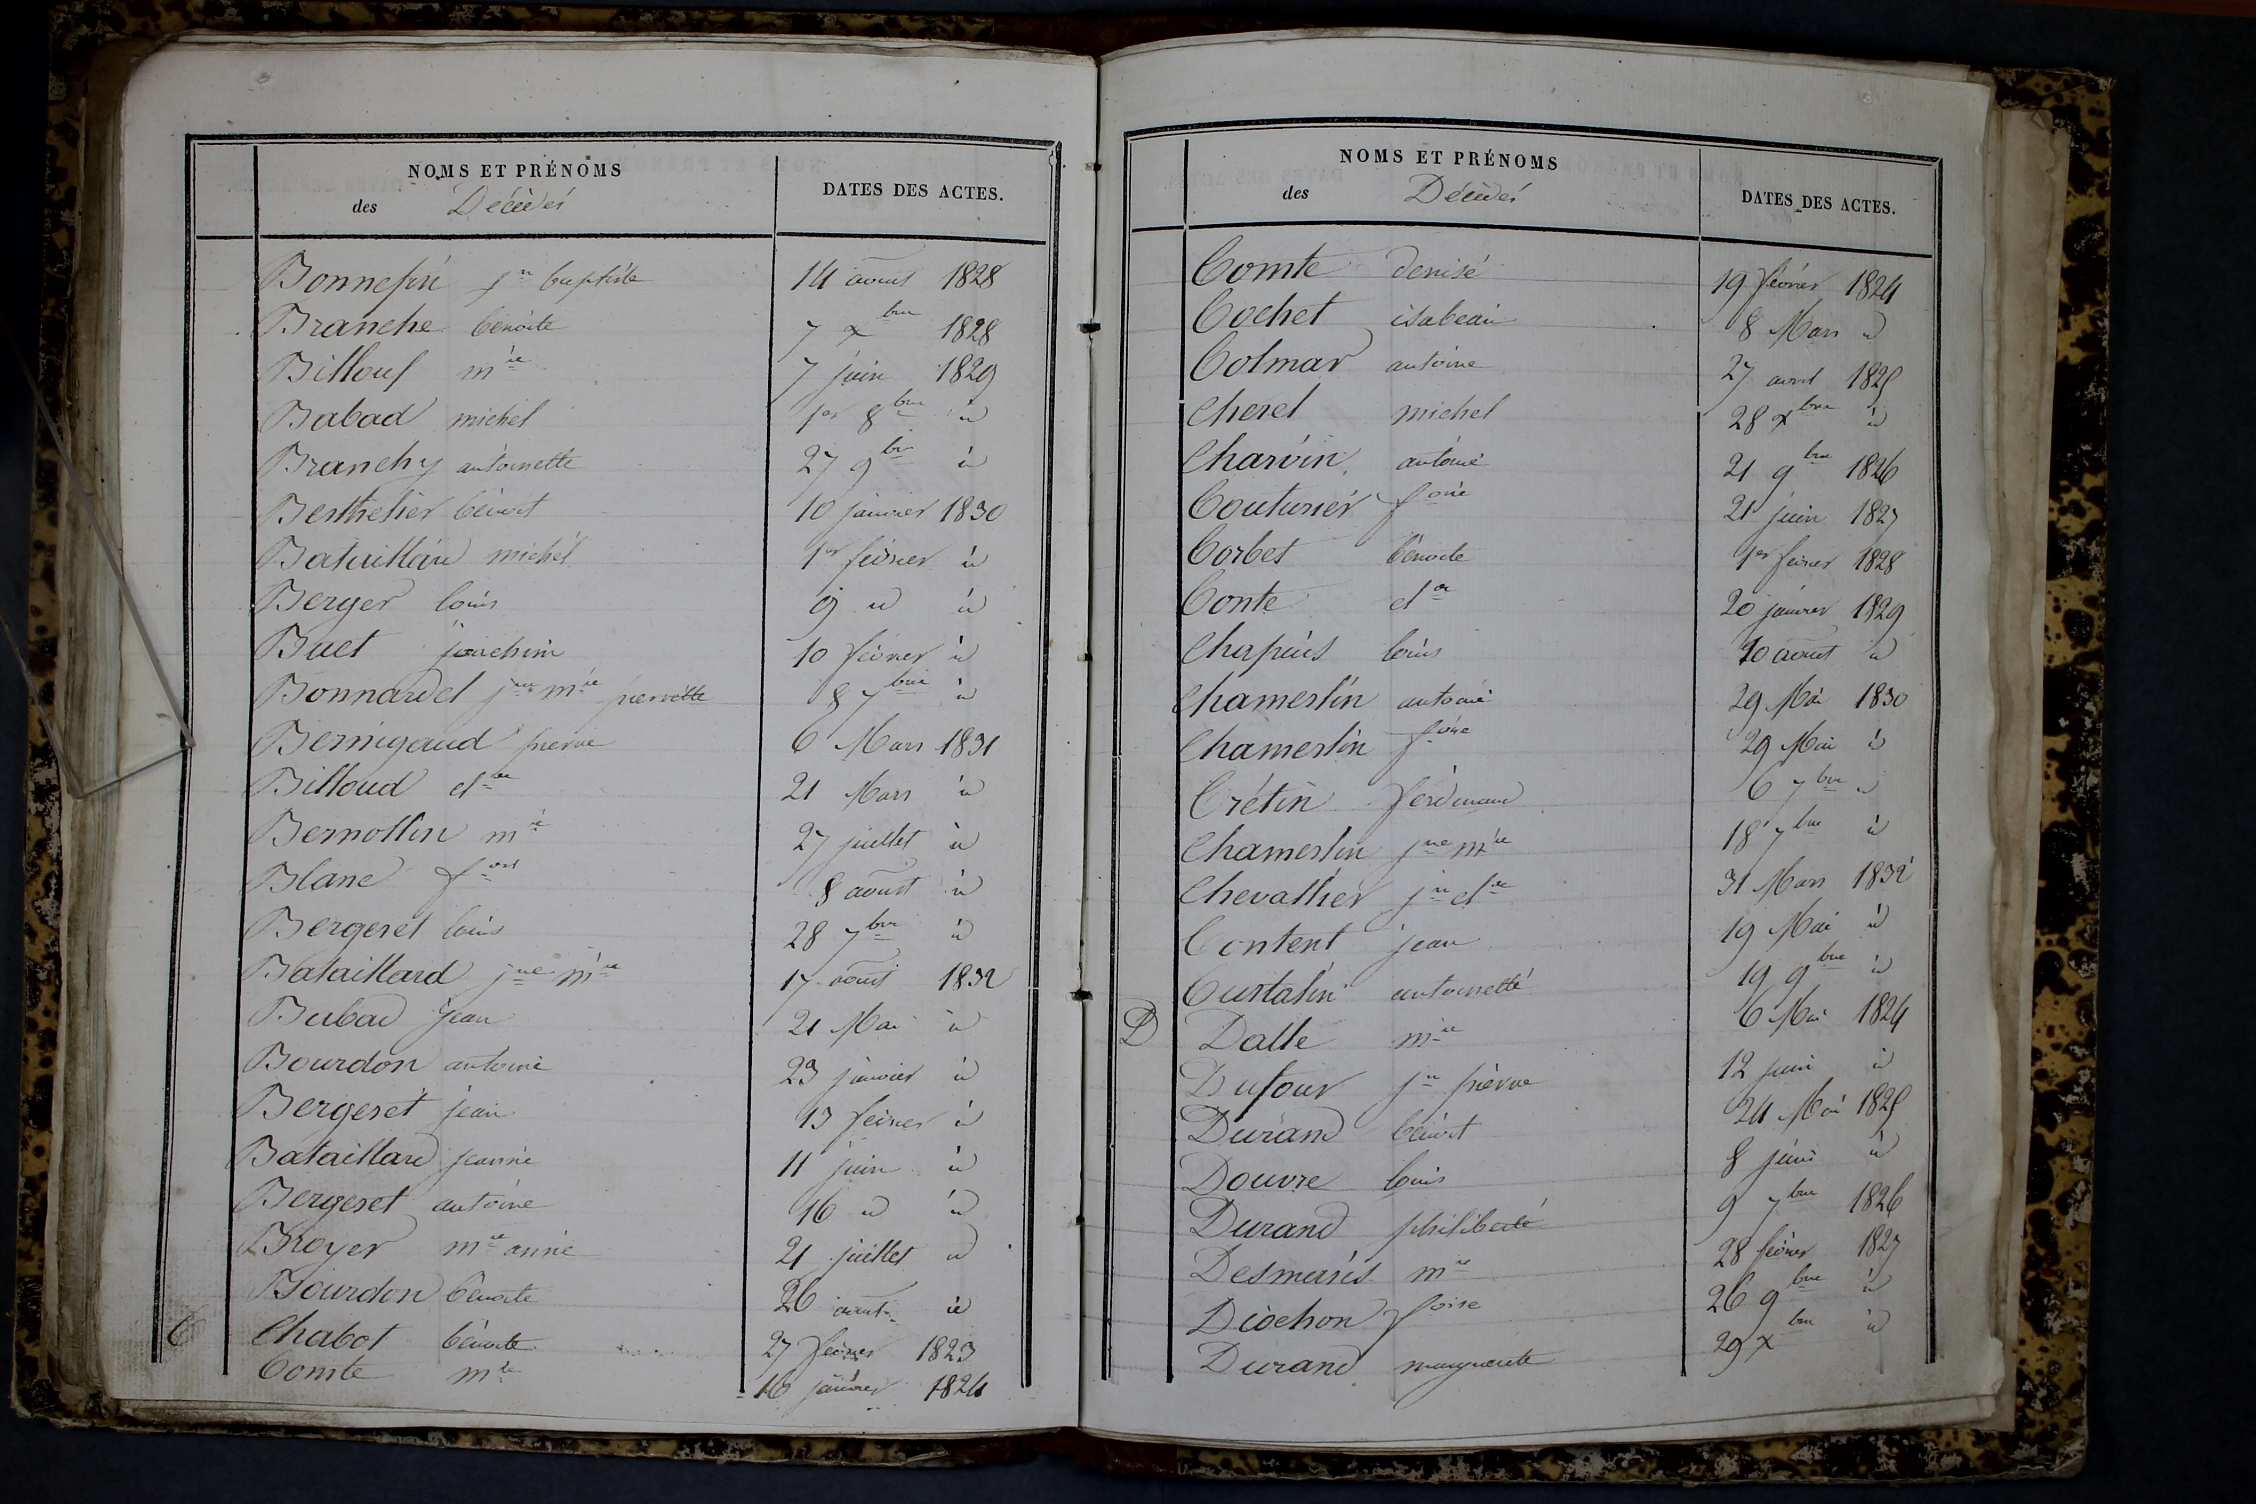 NOMS ET PRÉNOMS
des Décédés
DATES DES ACTES.
Bonnepré jn baptiste 14 aout 1828
Branche benoite 7 xbre 1828
Billouf mie 7 juin 1829
Babad michel 1er 8bre id
Branchy antoinette 27 9bre id
Berthelier benoit 10 janvier 1830
Bataillard michel 1er fevrier id
Berger louis 9 id id
Buet joachim 10 fevrier id
Bonnardel jne mie pierrette 8 7bre id
Bernigaud pierre 6 Mars 1831
Billoud cl 21 Mars id
Bernollin mie 27 juillet id
Blanc fois 8 aout id
Bergeret louis 28 7bre id
Bataillard jne mie 17 aout 1832
Babad jean 21 Mai id
Bourdon antoine 23 janvier id
Bergeret jean 13 fevrier id
Bataillard jeanne 11 juin id
Bergeret antoine 16 id id
Broyer mie anne 21 juillet id
Bourdon benoite 26 aout id
C Chabot benoite 27 fevrier 1823
Comte mie 16 janvier 1824
NOMS ET PRÉNOMS
des Décédés
DATES DES ACTES.
Comte denise 19 fevrier 1824
Cochet isabeau 8 Mars id
Colmar antoine 27 avril 1825
Cherel michel 28 xbre id
Charvin antoine 21 9bre 1826
Couturier foise 21 juin 1827
Corbet benoite 1er fevrier 1828
Conte cl 20 janvier 1829
Chapuis louis 10 aout id
Chamerlin antoine 29 Mai 1830
Chamerlin foise 29 Mai id
Crétin ferdinand 6 7bre id
Chamerlin jne mie 18 7bre id
Chevallier jn cl 31 Mars 1832
Content jean 19 Mai id
Curtalin antoinette 19 9bre id
D Dalle mie 6 Mai 1824
Dufour jn pierre 12 juin id
Durand benoit 24 Mai 1825
Douvre louis 8 juin id
Durand philiberte 9 7bre 1826
Desmaris mie 28 fevrier 1827
Diochon foise 26 9bre id
Durand marguerite 29 xbre id